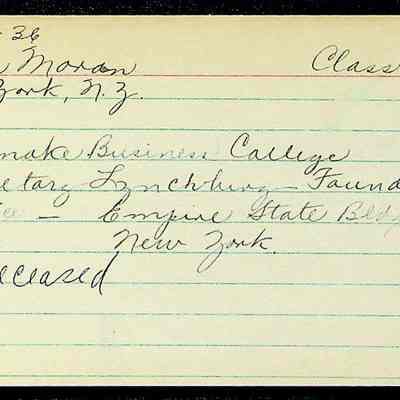 36
Moran Class
York, N.Y.
noke Business College
etary Lynchburg - Found
ice - Empire State Bldg
New York.
eceased